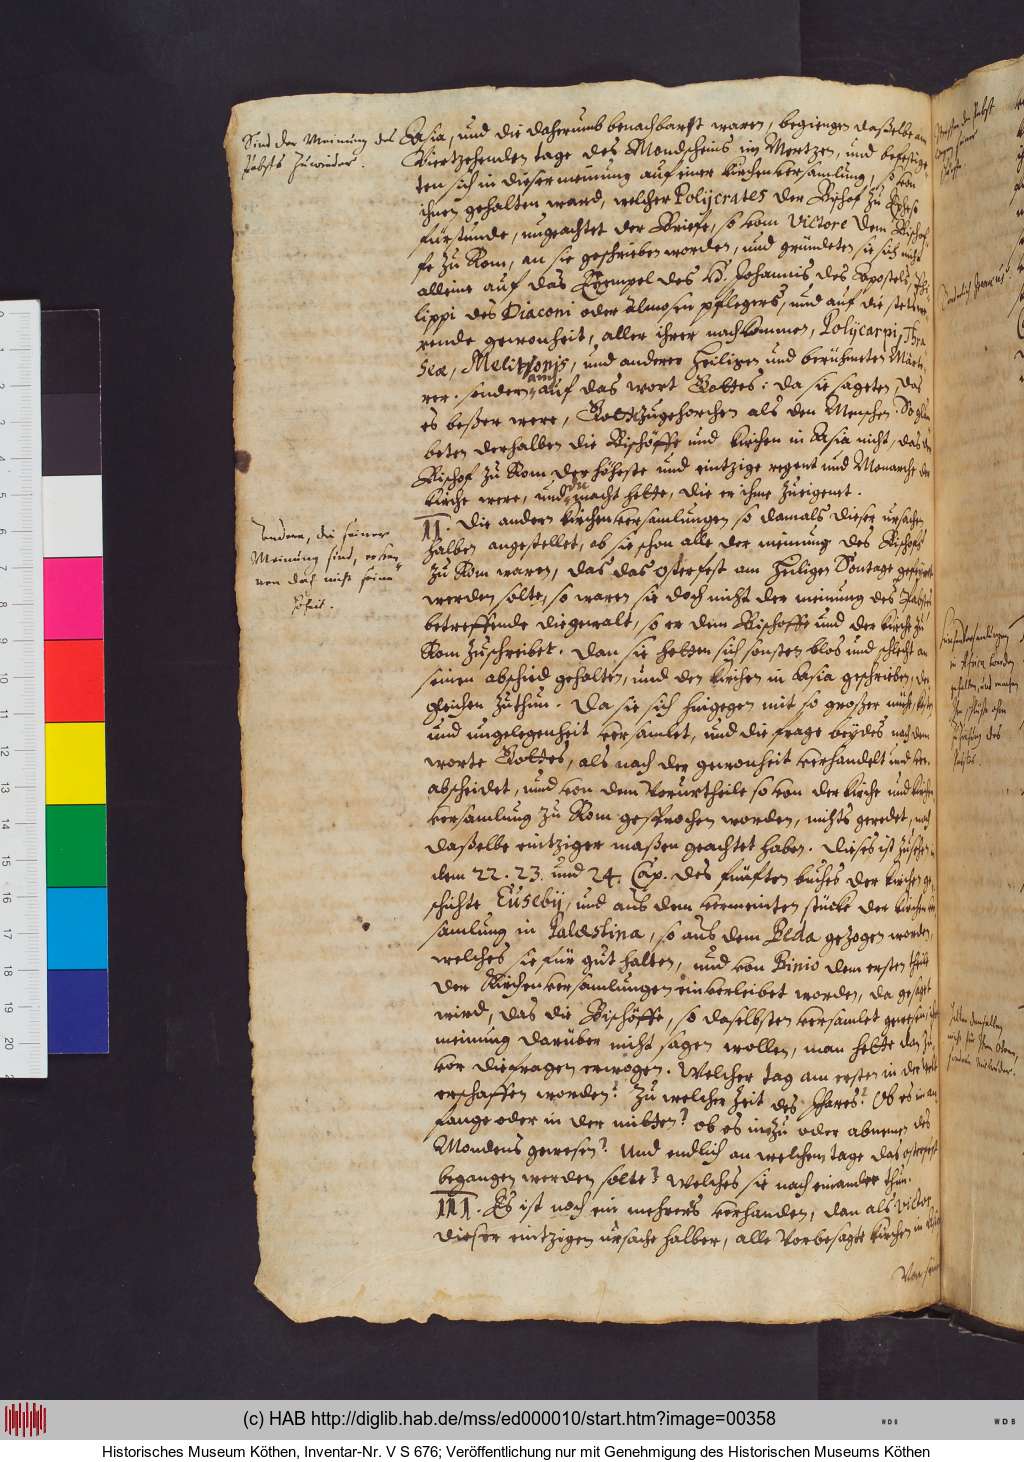 Sind der Meinung des
Pabsts zuwieder.
Asia, und die daherumb benachbarst waren, begiengen dasselbe am
Viertzehenden tage des Mondscheins im Mertzen, und befestig-
ten sich in dieser meinung auf einer Kirchenversamlung, so von
ihnen gehalten ward, welcher Polycrates der Bischof zu Epheso
fürstunde, ungeachtet der Briefe, so vom Victore dem Bischof-
fe zu Rom, an sie geschrieben worden, und gründeten sie sich nicht
alleine auf das Exempel des H. Johannis des Apostels, Phi-
lippi des Diaconi oder almosen pflegers, und auf die stets we-
rende gewonheit, aller ihrer nachkommen, Polycarpi, Thra-
seæ, Melitonis, und anderer heiligen und berühmeten Märti-
rer. sondern auch auf das wort Gottes: da sie sageten, das
es besser were, Gott zugehorchen als den Menschen. So gleu-
beten derhalben die Bischöffe und Kirchen in Asia nicht, das der
Bischof zu Rom der höheste und eintzige regent und Monarche der
Kirche were, und die macht hette, die er ihme zueigenet.
Andere, die seiner
Meinung sind, erken-
nen doch nicht seine
hoheit.
II. Die andern Kirchenversamlungen so damals dieser ursachen
halben angestellet, ob sie schon alle der meinung des Bischofs
zu Rom waren, das das osterfest am heiligen Sontage gefeyret
werden solte, so waren sie doch nicht der meinung des Pabsts,
betreffende die gewalt, so er dem Bischoffe und der Kirche zu
Rom zuschreibet. Dan sie hetten sich sonsten blos und schlecht an
seinen abschied gehalten, und den Kirchen in Asia geschrieben, des
gleichen zuthun. Da sie sich hingegen mit so grosser mühe, kosten
und ungelegenheit versamlet, und die frage beydes nach dem
worte Gottes, als nach der gewonheit verhandelt und ver-
abscheidet, und von dem Vorurtheile so von der Kirche und Kirchen
versamlung zu Rom gesprochen worden, nichts geredet, noch
dasselbe eintziger massen geachtet haben. Dieses ist zusehen in
dem 22. 23. und 24. Cap. des fünften buches der Kirchen ge-
schichte Eusebij, und aus dem vermeinten stücke der Kirchen ver-
samlung in Palæstina, so aus dem Beda gezogen worden,
welches sie für gut halten, und von Binio dem ersten theile
der Kirchenversamlungen einverleibet worden, da gesaget
wird, das die Bischöffe, so daselbsten versamlet gewesen, ihre
meinung darüber nicht sagen wollen, man hette dan zu-
vor die fragen erwogen. Welcher tag am ersten in der welt
erschaffen worden? Zu welcher Zeit des Jhares? Ob es im an-
fange oder in der mitten? ob es im zu oder abnemen des
Mondens gewesen? Und endlich an welchem tage das osterfest
begangen werden solte? Welches sie nach einander thun.
III. Es ist noch ein mehrers verhanden, dan als Victor
dieser eintzigen ursache halber, alle Vorbesagte Kirchen in Asia
Von
(c) HAB http://diglib.hab.de/mss/ed000010/start.htm?image=00358
Historisches Museum Köthen, Inventar-Nr. V S 676; Veröffentlichung nur mit Genehmigung des Historischen Museums Köthen